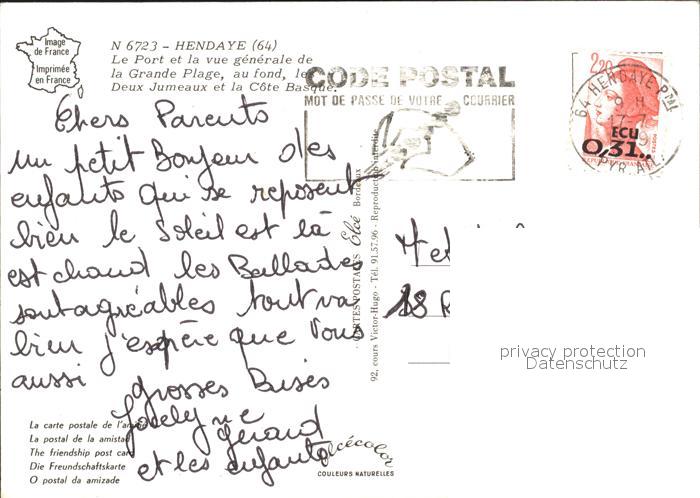 Image
de France
Imprimée
en France
N 6723 - HENDAYE (64)
Le Port et la vue générale de
la Grande Plage, au fond, les
Deux Jumeaux et la Côte Basque.
CODE POSTAL
MOT DE PASSE DE VOTRE COURRIER
64 HENDAYE Pal
9 H
17-7
PYR. ATL.
2,20
ECU
0,31
Chers Parents
un petit Bonjour des
enfants qui se reposent
bien le soleil est là
est chaud les Ballades
sont agréables tout va
bien j'espère que Vous
aussi
grosses Bises
Jocelyne
gérard
et les enfants
CARTES POSTALES Elcé Bordeaux
92, cours Victor-Hugo - Tél. 91.57.96 - Reproduction interdite
18 R
privacy protection
Datenschutz
La carte postale de l'ami
La postal de la amistad
The friendship post card
Die Freundschaftskarte
O postal da amizade
elcécolor
COULEURS NATURELLES